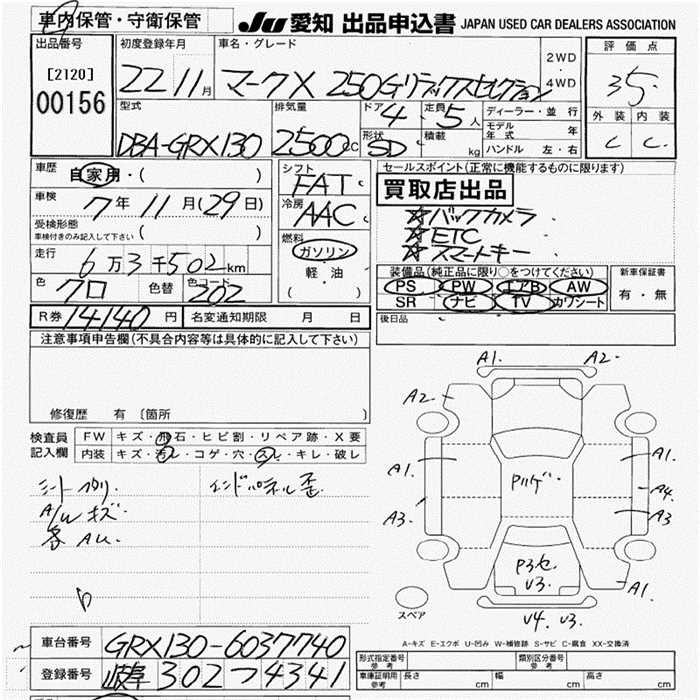 車内保管・守衛保管
JU 愛知 出品申込書 JAPAN USED CAR DEALERS ASSOCIATION
出品番号 [2120] 00156
初度登録年月 22 11月
車名・グレード マークX 250Gリラックスセレクション 2WD 4WD
評価点 3.5
外装 内装
C C
型式 DBA-GRX130
排気量 2500cc
ドア 4 定員 5人
形状 SD 積載 kg
ディーラー・並行
モデル年式 年
ハンドル 左・右
車歴 自家用・( )
車検 7年11月(29日)
受検形態
車検付きのみ記入して下さい ( )
走行 6万3千502km
色 クロ 色替 色コード 202
シフト FAT
冷房 AAC
燃料 ガソリン
軽・油
( )
セールスポイント(正常に機能するものに限ります)
買取店出品
☆バックカメラ
☆ETC
☆スマートキー
装備品(純正品に限り○をつけてください)
PS PW エアB AW
SR ナビ TV カワシート
新車保証書
有・無
後日品
R券 14140円 名変通知期限 月 日
注意事項申告欄(不具合内容等は具体的に記入して下さい)
修復歴 有 〔箇所 〕
検査員記入欄
FW キズ・飛石・ヒビ割・リペア跡・X要
内装 キズ・汚レ・コゲ・穴・スレ・キレ・破レ
シート スリ.
インドパネル歪.
A/W キズ.
各AU.
A1. A2.
A2.
A1. A1.
Pハゲ.
A3. A4.
A3
P3セ.
V3.
A1.
V4. V3.
スペア
A-キズ E-エクボ U-凹み W-補修跡 S-サビ C-腐食 XX-交換済
車台番号 GRX130-6037740
登録番号 岐阜 302 つ 4341
形式指定番号 参考 類別区分番号 参考
車庫証明用 参考 長さ cm 幅 cm 高さ cm